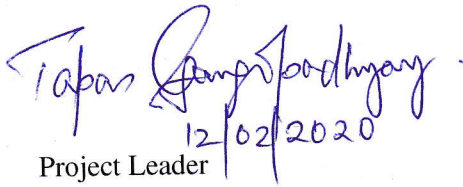 Tapas Gangopadhyay.
12/02/2020
Project Leader